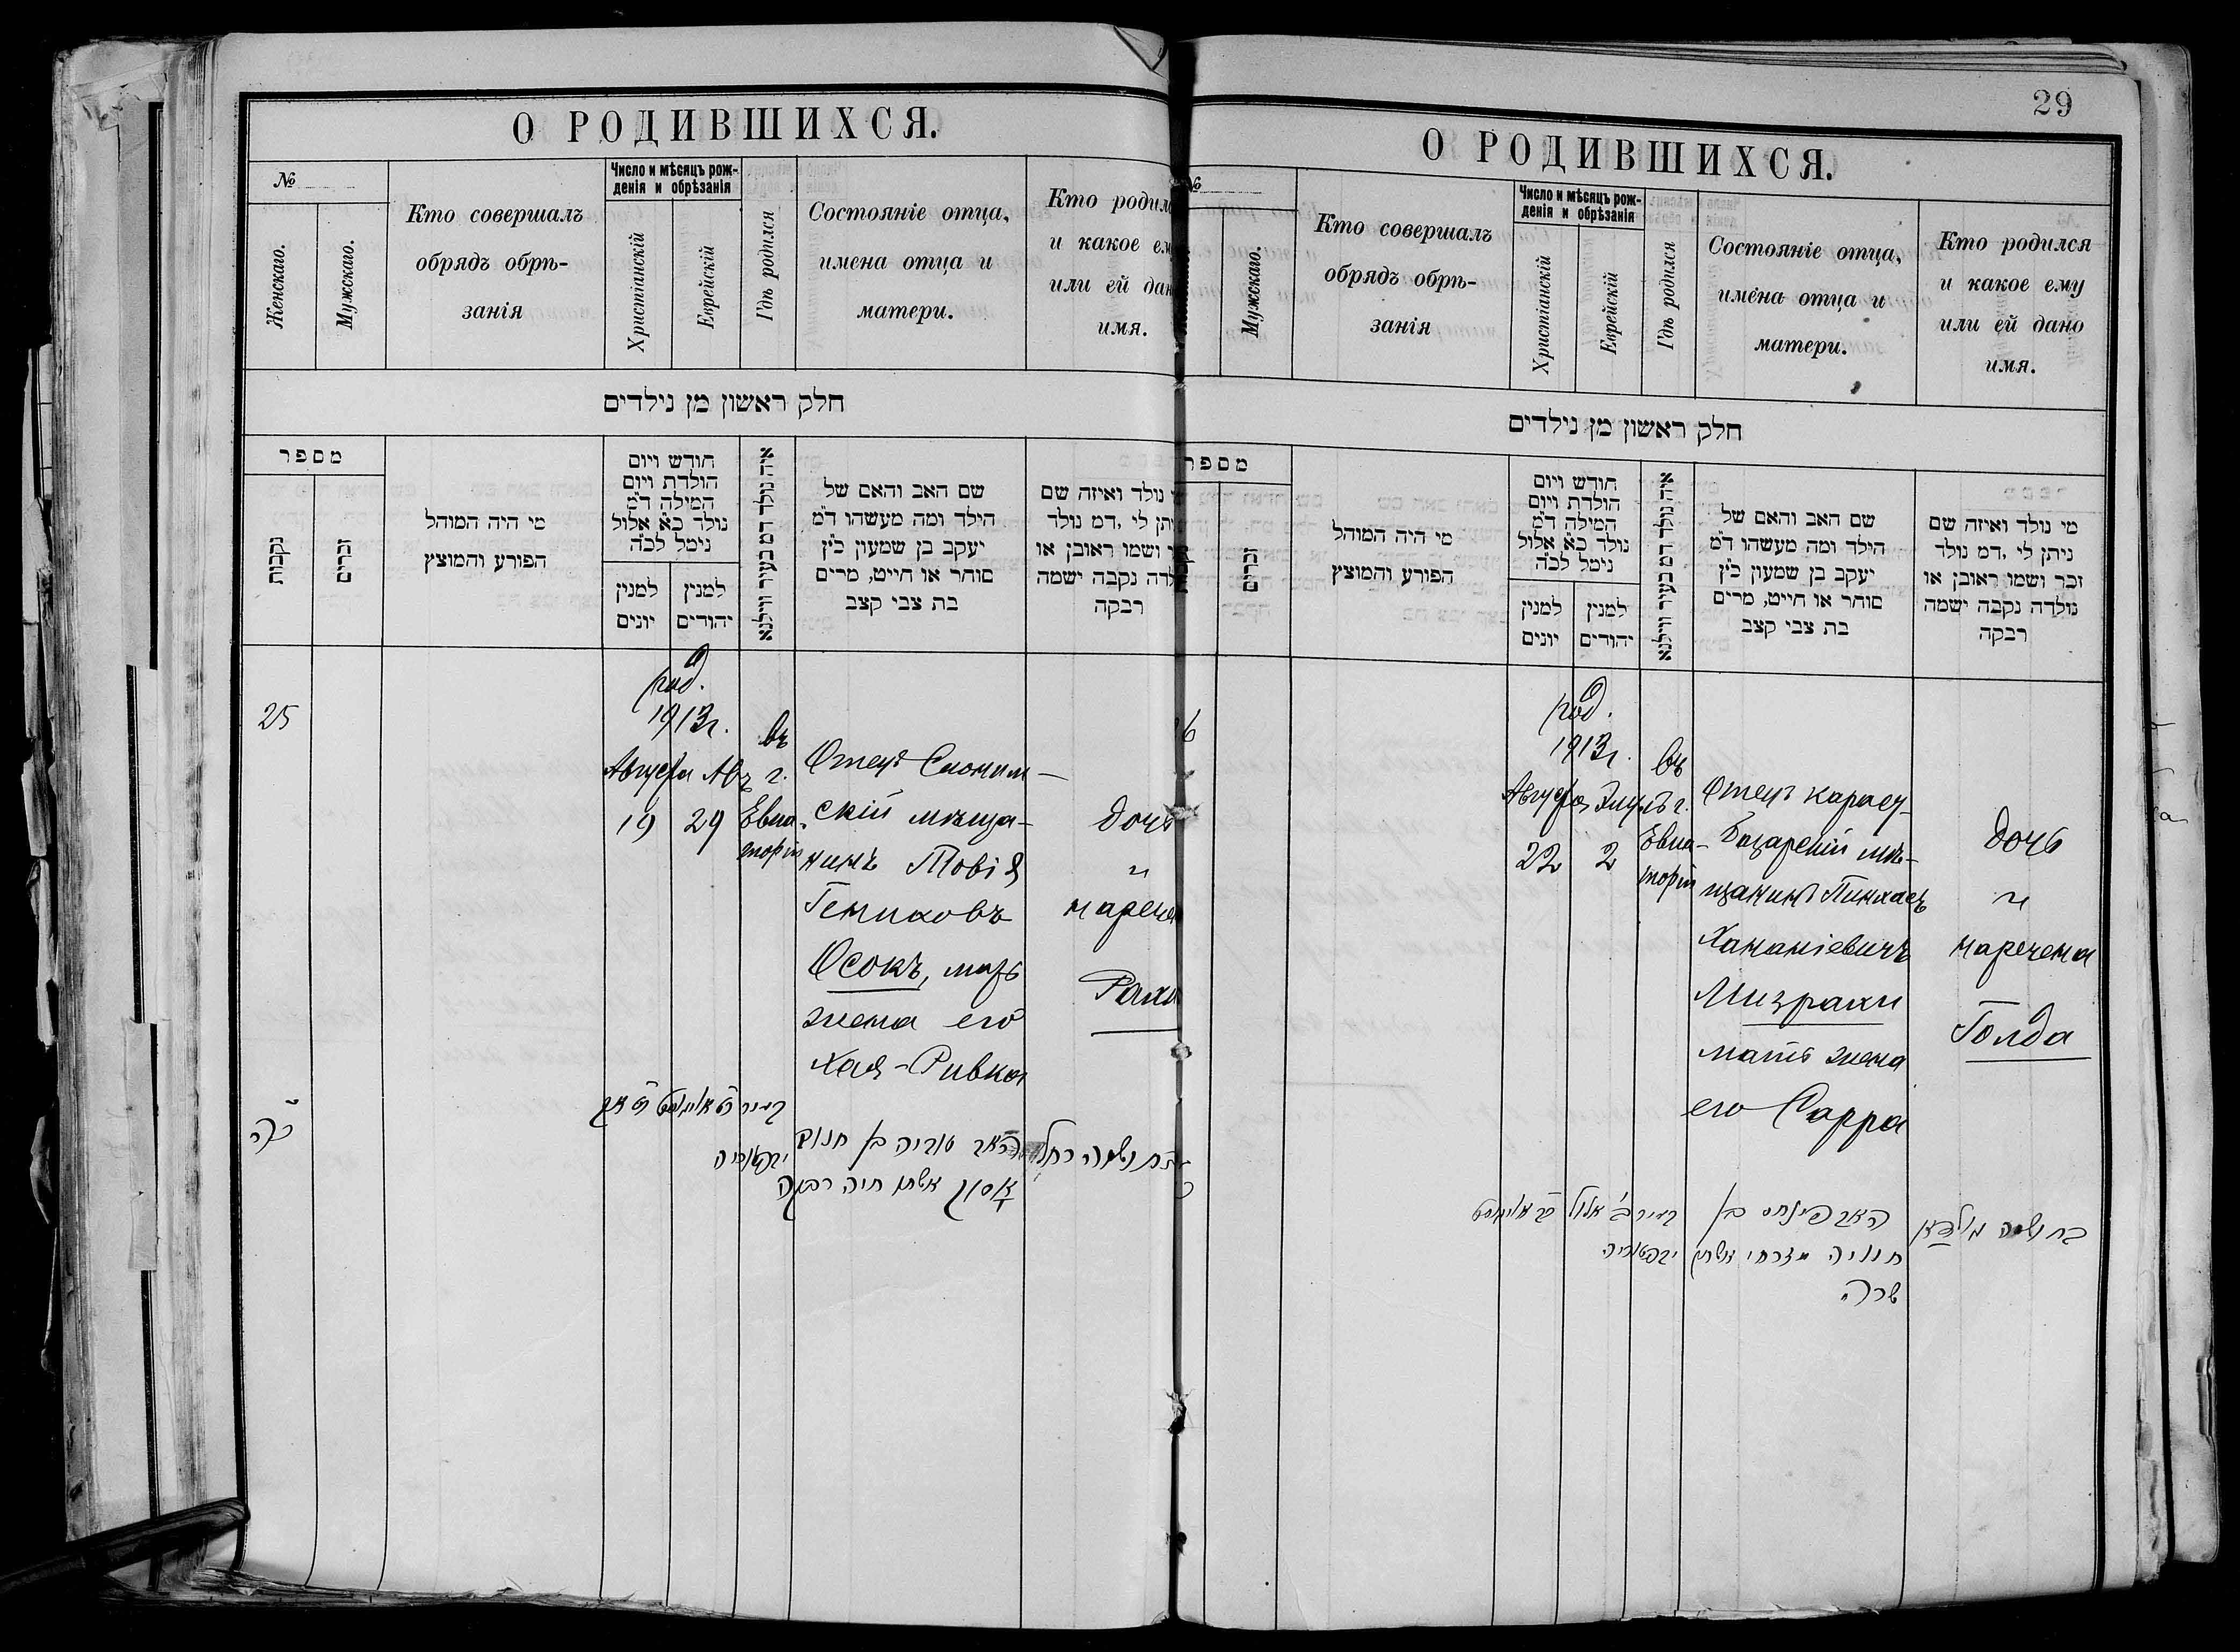 О РОДИВШИХСЯ.
№
Женскаго.
Мужскаго.
Кто совершалъ
обрядъ обрѣ-
занія
Число и мѣсяцъ рож-
денія и обрѣзанія
Христіанскій
Еврейскій
Гдѣ родился
Состояніе отца,
имена отца и
матери.
Кто родил
и какое ем
или ей дан
имя.
חלק ראשון מן נילדים
מספר
נקבות
זכרים
מי היה המוהל
הפורע והמוצץ
חודש ויום
הולדת ויום
המילה ד״מ
נולד כ״א אלול
נימל לכ״ה
למנין
יונים
למנין
יהודים
איה נולד דמ בעיר ווילנא
שם האב והאם של
הילד ומה מעשהו ד״מ
יעקב בן שמעון כ״ץ
סוחר או חייט, מרים
בת צבי קצב
נולד ואיזה שם
יתן לי ,דמ נולד
ושמו ראובן או
לדה נקבה ישמה
רבקה
25
род.
1913 г.
Августа Авъ
19 29
въ
г.
Евпа-
торіи
Отецъ Слоним-
скій мѣща-
нинъ Товія
Гениховъ
Осокъ, мать
жена его
Хая-Ривка
дочь
и
нарече
Рахи
כ״ה
יבפטוריה
טוביה בן חנוך
אסוק אשתו חיה רבקה
ושמה רחל
29
О РОДИВШИХСЯ.
№
Мужскаго.
Кто совершалъ
обрядъ обрѣ-
занія
Число и мѣсяцъ рож-
денія и обрѣзанія
Христіанскій
Еврейскій
Гдѣ родился
Состояніе отца,
имена отца и
матери.
Кто родился
и какое ему
или ей дано
имя.
חלק ראשון מן נילדים
מספר
זכרים
מי היה המוהל
הפורע והמוצץ
חודש ויום
הולדת ויום
המילה ד״מ
נולד כ״א אלול
נימל לכ״ה
למנין
יונים
למנין
יהודים
איה נולד דמ בעיר ווילנא
שם האב והאם של
הילד ומה מעשהו ד״מ
יעקב בן שמעון כ״ץ
סוחר או חייט, מרים
בת צבי קצב
מי נולד ואיזה שם
ניתן לי ,דמ נולד
זכר ושמו ראובן או
נולדה נקבה ישמה
רבקה
6
род.
1913 г.
Августа Элулъ
22 2
въ
г.
Евпа-
торіи
Отецъ карасу-
базарскій мѣ-
щанинъ Пинхасъ
Хананіевичъ
Мизрахи
мать жена
его Сарра
дочь
и
наречена
Голда
ב׳ אלול
יבפטוריה
האב פינחס בן
חנניה מזרחי אשתו
שרה
בת ושמה גולדא